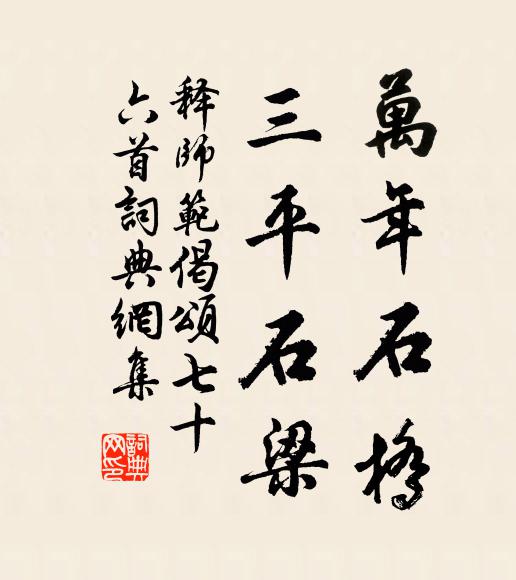 萬年石橋
三平石梁
釋師範偈頌七十
六首詞典網集
詞典網印